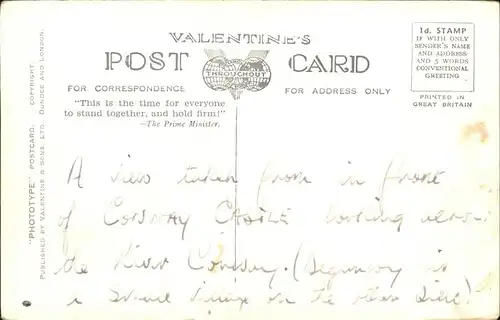 VALENTINE'S
POST CARD
THROUGHOUT
FOR CORRESPONDENCE
FOR ADDRESS ONLY
"This is the time for everyone
to stand together, and hold firm!"
—The Prime Minister.
1d. STAMP
IF WITH ONLY
SENDER'S NAME
AND ADDRESS
AND 5 WORDS
CONVENTIONAL
GREETING
PRINTED IN
GREAT BRITAIN
"PHOTOTYPE" POSTCARD. COPYRIGHT
PUBLISHED BY VALENTINE & SONS, LTD. DUNDEE AND LONDON.
A view taken from in front
of CONWAY CASTLE looking across
the River Conway. (Deganwy is
a village on the other side)